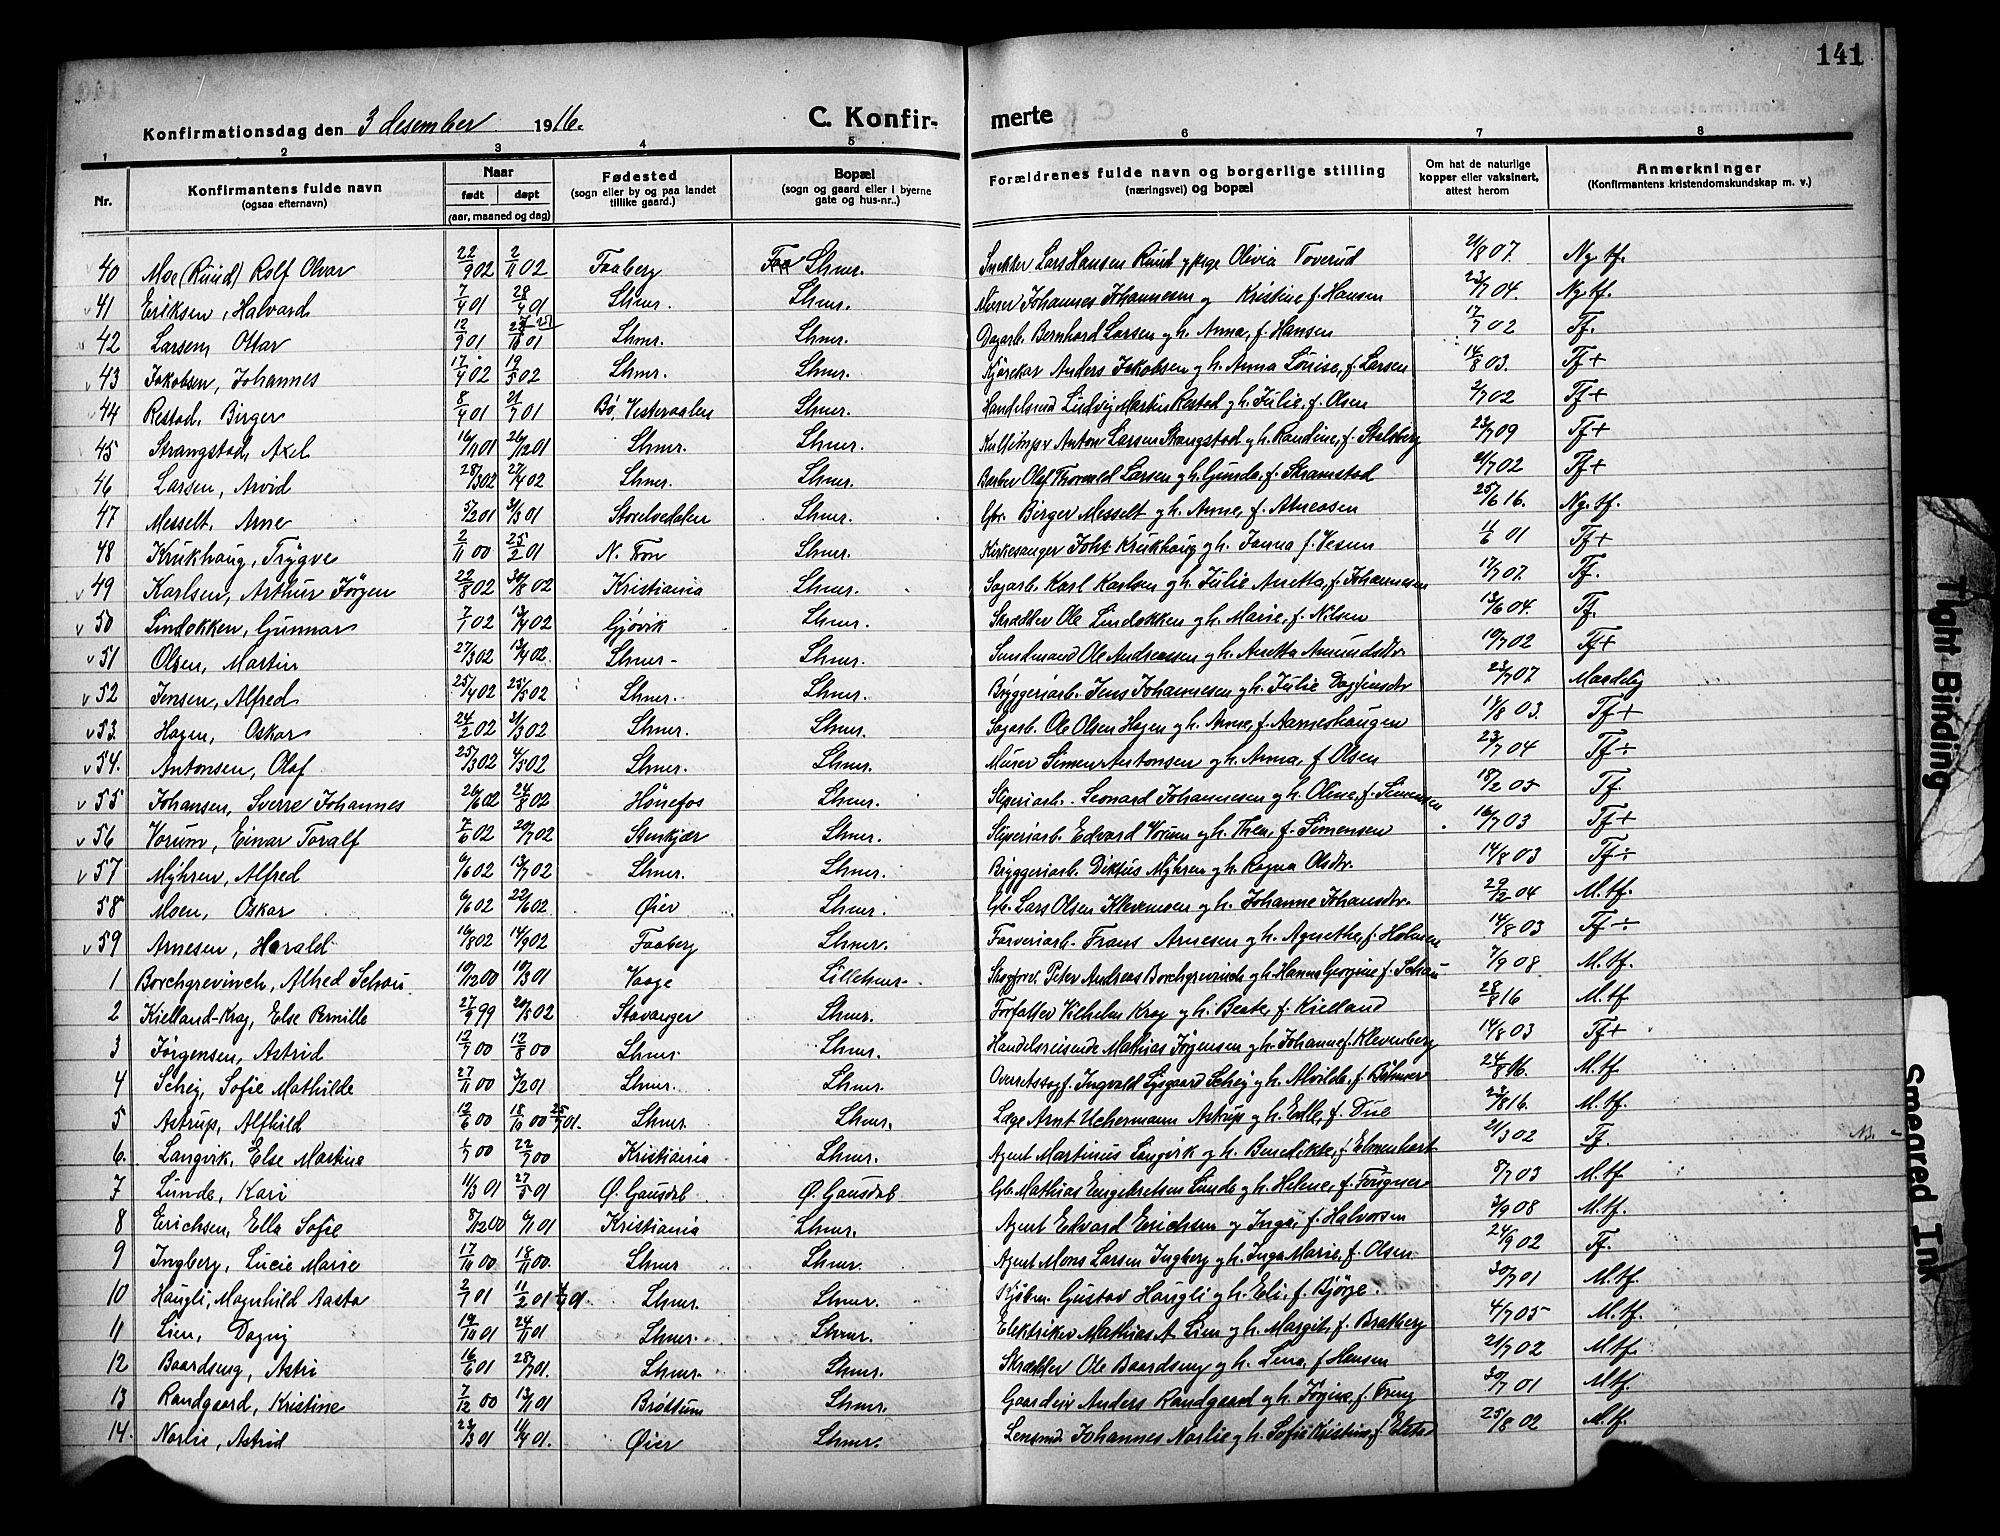 141
Konfirmationsdag den 3 desember 1916.
C. Konfirmerte
1 2 3 4 5 6 7 8
Nr. Konfirmantens fulde navn (ogsaa efternavn) Naar født døpt (aar, maaned og dag) Fødested (sogn eller by og paa landet tillike gaard.) Bopæl (sogn og gaard eller i byerne gate og hus-nr..) Forældrenes fulde navn og borgerlige stilling (næringsvei) og bopæl Om hat de naturlige kopper eller vaksinert, attest herom Anmerkninger (Konfirmantens kristendomskundskap m. v.)
40 Moe (Ruud) Rolf Olvar 22/9 02 2/11 02 Faaberg Lhmr. Snekker Lars Hansen Ruud og pige Olivia Toverud 21/8 07. Ng. tf.
41 Eriksen, Halvard 7/4 01 28/4 01 Lhmr. Lhmr. Murer Johannes Johannesen og Kristine f. Hansen 23/7 04. Ng tf.
42 Larsen, Ottar 12/9 01 Lhmr. Lhmr. Dagarb. Bernhard Larsen og h. Anna, f. Hansen 17/7 02 Tf.
43 Jakobsen, Johannes 17/4 02 19/5 02 Lhmr. Lhmr. Kjørekar Anders Jakobsen og h. Anna Louise, f. Larsen 14/8 03. Tf+
44 Restad, Birger 8/4 01 21/7 01 Bø, Vesteraalen Lhmr. Handelsmd Ludvig Martin Restad og h. Julie, f. Olsen 2/7 02 Tf+
45 Strangstad, Axel 16/11 01 26/12 01 Lhmr. Lhmr. Anton Larsen Strangstad og h. Randine, f. Stalsberg 23/7 09 Tf+
46 Larsen, Arvid 28/3 02 27/4 02 Lhmr. Lhmr. Barber Olaf Thorvald Larsen og h. Gunda, f. Skramstad 21/7 02 Tf+
47 Messelt, Arne 5/2 01 31/3 01 Storelvedalen Lhmr. Gbr. Birger Messelt og h. Anne, f. 25/6 16. Ng. tf.
48 Krukhaug, Trygve 2/11 00 25/2 01 N. Fron Lhmr. Kirkesanger Joh. Krukhaug og h. Janna f. Vesum 1/6 01 Tf+
49 Karlsen, Arthur Jørgen 22/8 02 30/8 02 Kristiania Lhmr. Sagarb. Karl Karlsen og h. Julie Anetta, f. Johannesen 17/7 07. Tf.
50 Lindokken, Gunnar 7/1 02 13/4 02 Gjøvik Lhmr. Skrædder Ole Lindokken og h. Marie, f. Nilsen 13/6 04. Tf.
51 Olsen, Martin 27/3 02 13/4 02. Lhmr. Lhmr. Ole Andreassen og h. Anetta Amundsdtr. 10/7 02 Tf+
52 Jensen, Alfred 25/4 02 25/5 02 Lhmr. Lhmr. Bryggeriarb. Jens Johannesen og h. Julie Dagfinsdtr 23/7 07. Maadelig
53. Hagen, Oskar 24/2 02 31/3 02 Lhmr. Lhmr. Sagarb. Ole Olsen Hagen og h. Anne, f. Aarneshaugen 14/8 03. Tf+
54. Antonsen, Olaf 25/3 02 4/5 02 Lhmr. Lhmr. Murer Simen Antonsen og h. Anna, f Olsen 23/7 04 Tf÷
55 Johansen, Sverre Johannes 26/6 02 24/8 02 Hønefos Lhmr. Sliperiarb. Leonard Johannesen og h. Oline, f. Simensen 18/2 05 Tf.
56 Vorum, Einar Toralf 7/6 02 20/7 02 Stenkjær Lhmr. Sliperiarb. Edvard Vorum og h. Thea, f. Simensen 16/7 03 Tf+
57 Myhren, Alfred 6/6 02 13/7 02 Lhmr. Lhmr. Bryggeriarb. Diktus Myhren og h. Ragna Olsdtr. 14/8 03 Tf÷
58 Moen, Oskar 6/6 02 22/6 02 Øier Lhmr. Gb. Lars Olsen og h. Johanne Johansdtr. 29/2 04 M. tf.
59 Arnesen, Harald 16/8 02 14/9 02 Faaberg Lhmr. Farveriarb. Frans Arnesen og h. Agnethe, f. Holmen 14/8 03 Tf÷
1 Borchgrevinch, Alfred Schou 10/12 00 10/3 01 Vaage Lillehmr. Skogforv. Peter Andreas Borchgrevinch og h. Hanna Georgine f. Schou 7/9 08 M. tf.
2 Kielland-Krag, Else Pernille 27/9 99 20/8 02 Stavanger Lhmr. Forfatter Vilhelm Krag og h. Beate, f. Kielland 28/8 16 M. tf
3 Jørgensen, Astrid 12/7 00 12/8 00 Lhmr. Lhmr. Handelsreisende Mathias Jørgensen og h. Johanne f. Klevenberg 14/8 03 Tf+
4 Scheij, Sofie Mathilde 27/11 00 3/2 01 Lhmr. Lhmr. Overretssagf. Ingvald Lysgaard Scheij og h. Alvilde, f. Bøhmer 24/8 16. M. tf.
5 Astrup, Alfhild 12/6 00 18/10 00 Lhmr. Lhmr. Læge Arnt Uchermann Astrup og h. Edle, f. Due 23/8 16. M. tf.
6. Langvik, Else Martine 1/7 00 22/7 00 Kristiania Lhmr. Agent Martinus Langvik og h. Benedikte, f. 21/3 02 Tf.
7 Lunde, Kari 11/3 01 27/5 01 Ø. Gausdal Ø. Gausdal Gb. Mathias Engebretsen Lunde og h. Helene, f. Fougner 8/7 03 M. tf.
8 Erichsen, Ella Sofie 8/12 00 6/1 01 Kristiania Lhmr. Agent Edvard Erichsen og Inga, f. Halvorsen 3/9 08 M. tf.
9 Ingberg, Lucie Marie 17/10 00 18/11 00. Lhmr Lhmr. Agent Mons Larsen Ingberg og h. Inga Marie, f. Olsen 24/9 02 Tf.
10 Haugli, Magnhild Aasta 2/7 01 11/2 01 Lhmr. Lhmr. Kjøbm. Gustav Haugli og h. Eli, f. Bjørge. 30/7 01 M. tf.
11 Lien, Dagny 19/10 01 24/11 01 Lhmr. Lhmr. Elektriker Mathias A. Lien og h. Margit, f. Bratberg 4/7 05 M. tf.
12 Baardseng, Astri 16/6 01 28/7 01. Lhmr. Lhmr. Skrædder Ole Baardseng og h. Lena, f. Hansen 21/7 02 M. tf.
13 Randgaard, Kristine 7/12 00 13/1 01 Brøttum Lhmr. Gaardeier Anders Randgaard og h. Jørgine, f. Freng 30/7 01 M. tf.
14. Norlie, Astrid 23/3 01 14/4 01. Øier Lhmr. Lensmd Johannes Norlie og h. Sofie Kristine, f. Elstad 25/8 02 M. tf.
Tight Binding
Smeared Ink